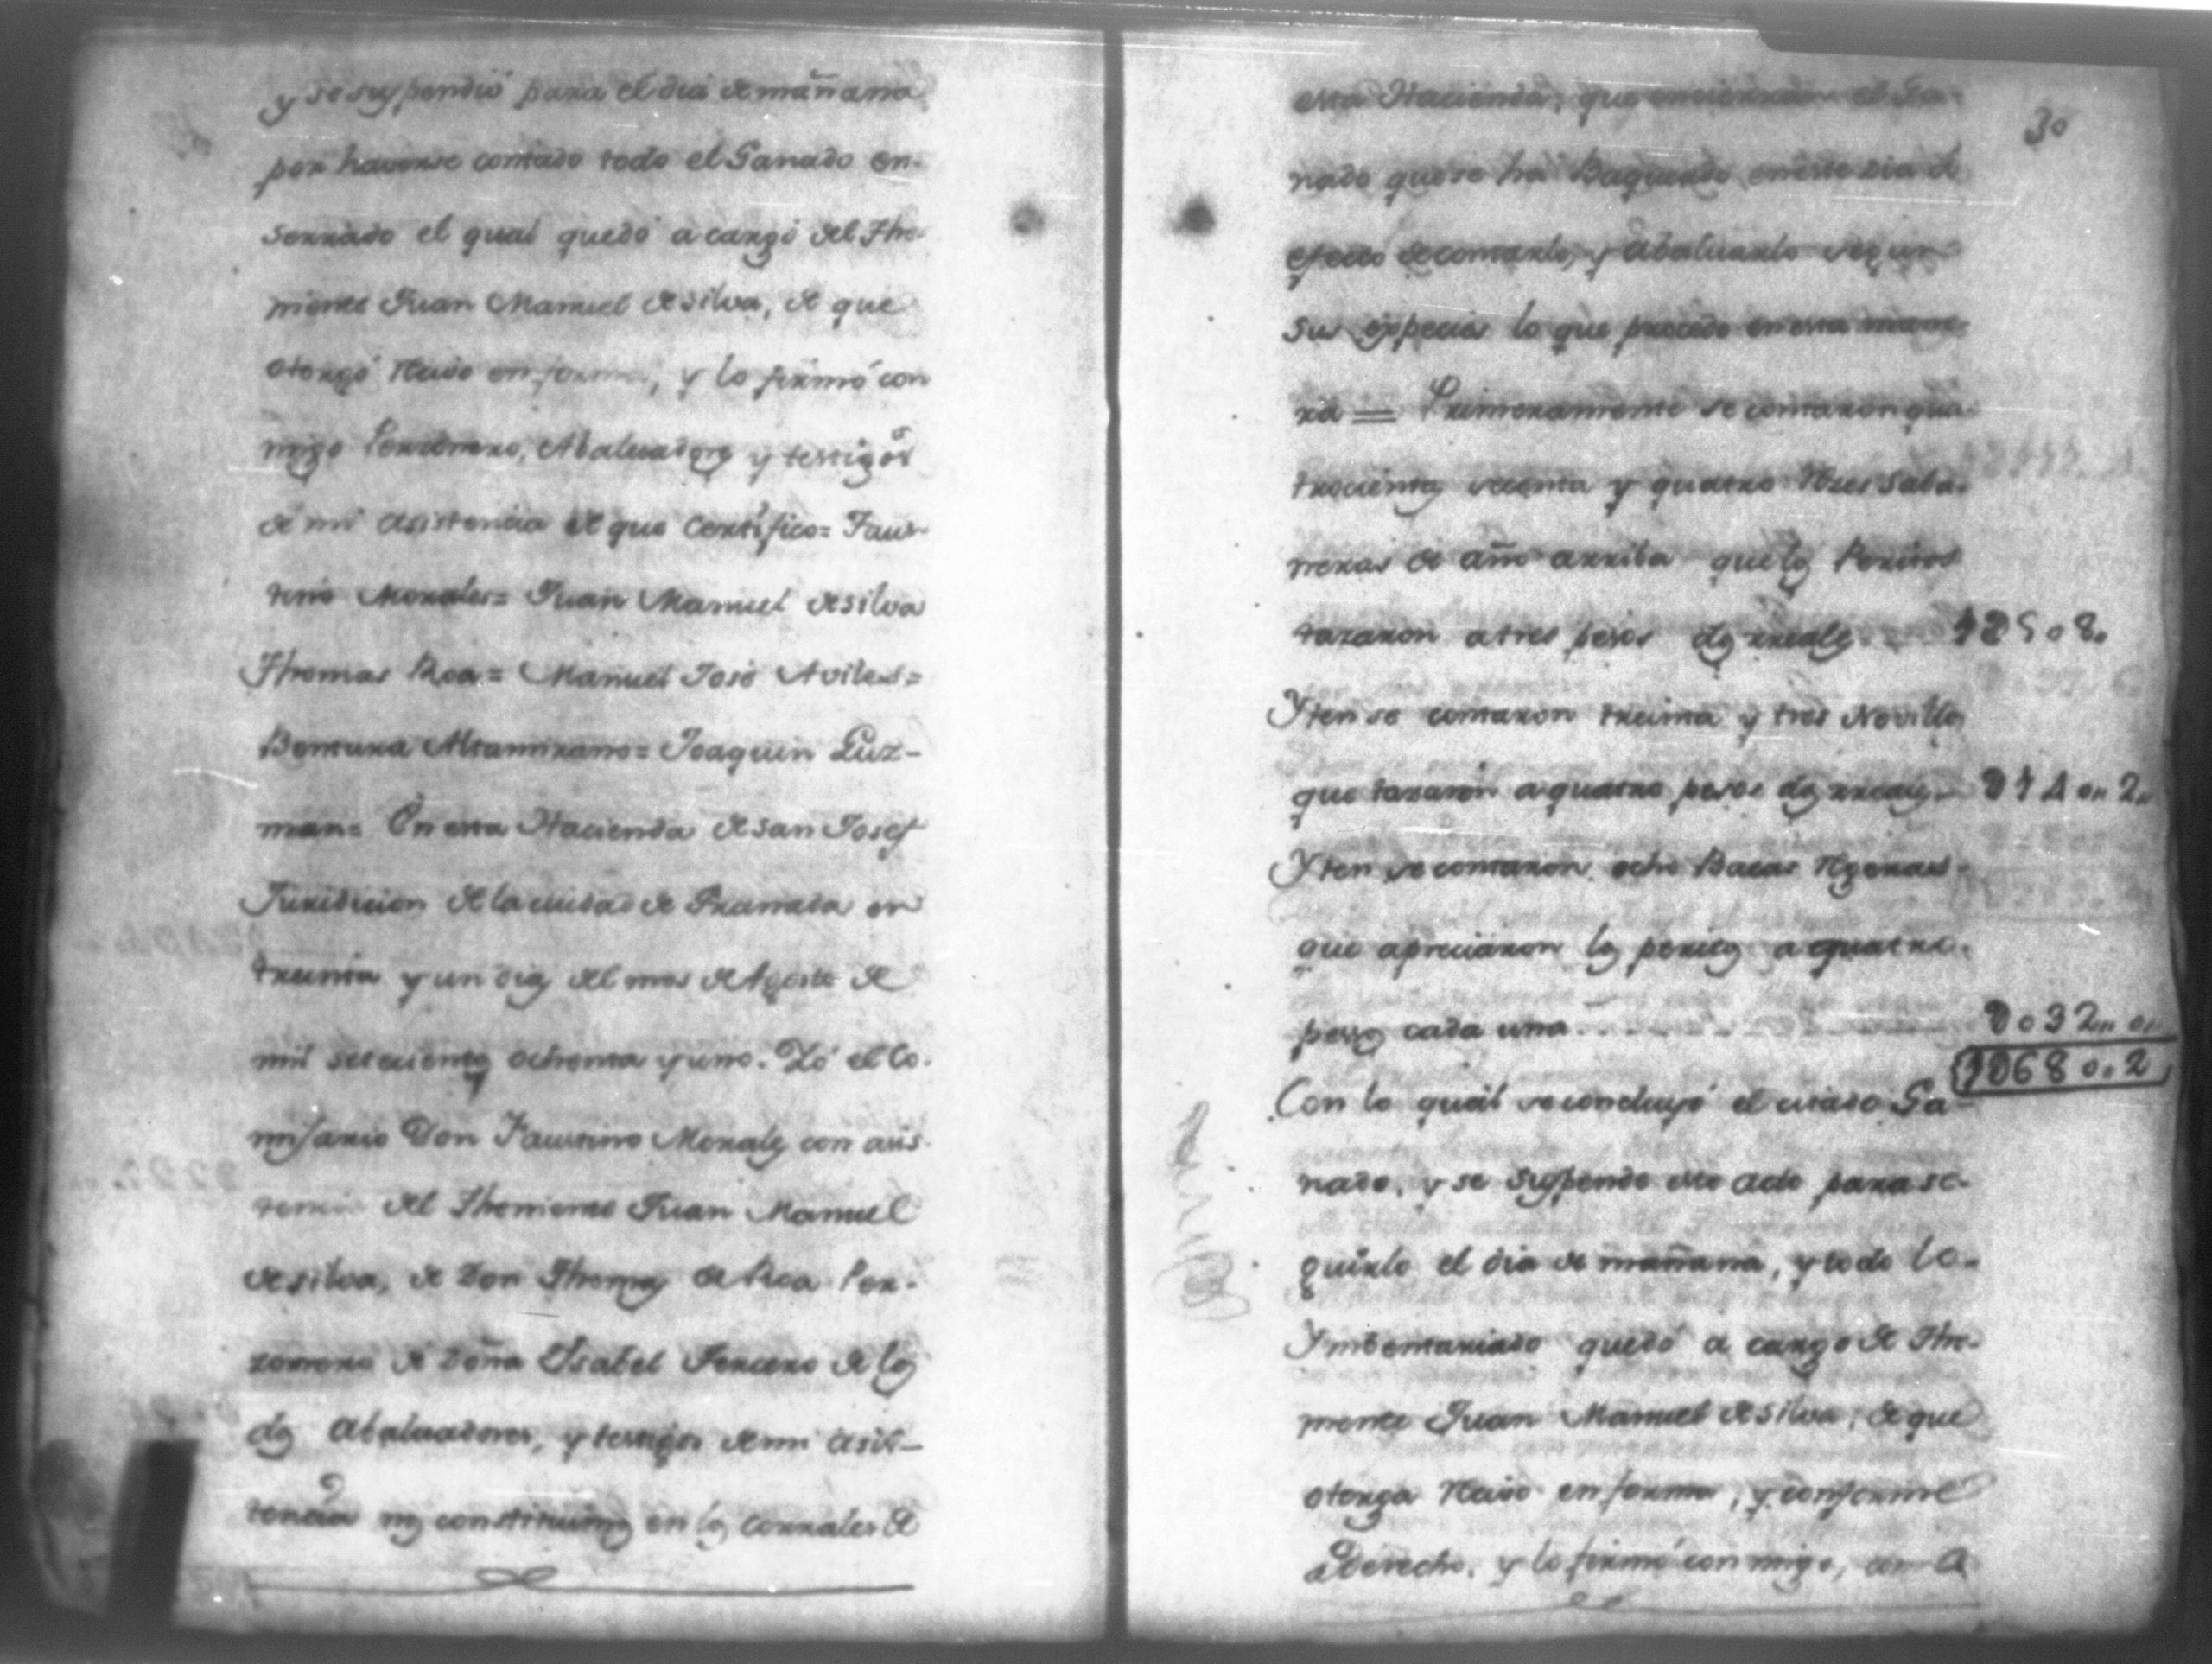 y se suspendió para el dia de mañana
por haverse contado todo el Ganado en-
serrado el qual quedó a cargo del The-
niente Juan Manuel de silva, de que
otorgó Recivo en forma, y lo firmó con
migo Porzonero, Abaluadores y testigos
de mi asistencia de que Certifico= Faus-
tino Morales= Juan Manuel de silva
Thomas Roa= Manuel José Aviles=
Bentura Altamirano= Joaquin Guz-
man= En esta Hacienda de San Josef
Juridicion de la ciudad de Granada en
treinta y un dias del mes de Agosto de
mil setecientos ochenta y uno. Yó el Co-
misario Don Faustino Morales con asis-
tencia del Theniente Juan Manuel
de silva, de Don Thomas de Roa Por-
zonero de Doña Ysabel Tercero de los
dos Abaluadores, y testigos de mi asis-
tencia nos constituimos en los corrales de
30
esta Hacienda, que encierran el Ga-
nado que se ha Baqueado en este dia á
efecto de contarlo, y Abaluarlo segun
sus expecies lo que procedo en esta mane-
ra = Primeramente se contaron qua-
trocientas secenta y quatro Reses Saba-
neras de año arriba que los Peritos
tazaron a tres pesos dos rreales
Yten se contaron treinta y tres Novillos
que tazaron a quatro pesos dos rreales
Yten se contaron ocho Bacas
que apreciaron los peritos a quatro
pesos cada una 032.. 0..
Con lo qual se concluyó el citado Ga-
nado, y se suspende este acto para se-
guirlo el dia de mañana, y todo lo
Ymbentariado quedó a cargo de The-
niente Juan Manuel de silva, de que
otorga Recivo en forma, y conforme
a Derecho, y lo firmó con migo, con